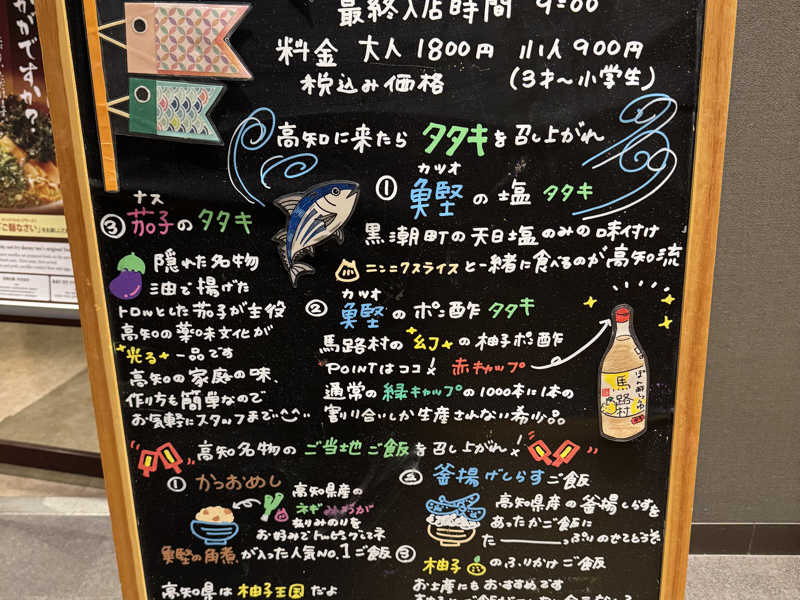 最終入店時間 9:00
料金 大人 1800円 小人 900円
税込み価格 (3才〜小学生)
高知に来たら タタキを召し上がれ
カツオ
① 鰹の塩タタキ
黒潮町の天日塩のみの味付け
ニンニクスライスと一緒に食べるのが高知流
カツオ
② 鰹のポン酢タタキ
馬路村の"幻"の柚子ポン酢
POINTはココ! 赤キャップ
通常の緑キャップの1000本に1本の
割り合いしか生産されない希少品
ぽん酢しょうゆ
馬路村
ナス
③ 茄子のタタキ
隠れた名物
油で揚げた
トロッとした茄子が主役
高知の薬味文化が
光る一品です
高知の家庭の味、
作り方も簡単なので
お気軽にスタッフまで
高知名物のご当地ご飯を召し上がれ!
① かつおめし
高知県産の
ネギ みょうが
きざみのりを
お好みでトッピングしてネ
鰹の角煮が入った人気No.1ご飯
② 釜揚げしらすご飯
高知県産の釜揚しらすを
あったかご飯に
た――っぷりのせてどうぞ
③ 柚子のふりかけご飯
お土産にもおすすめです
高知県は柚子王国だよ
がですか?
ご飯なさい」